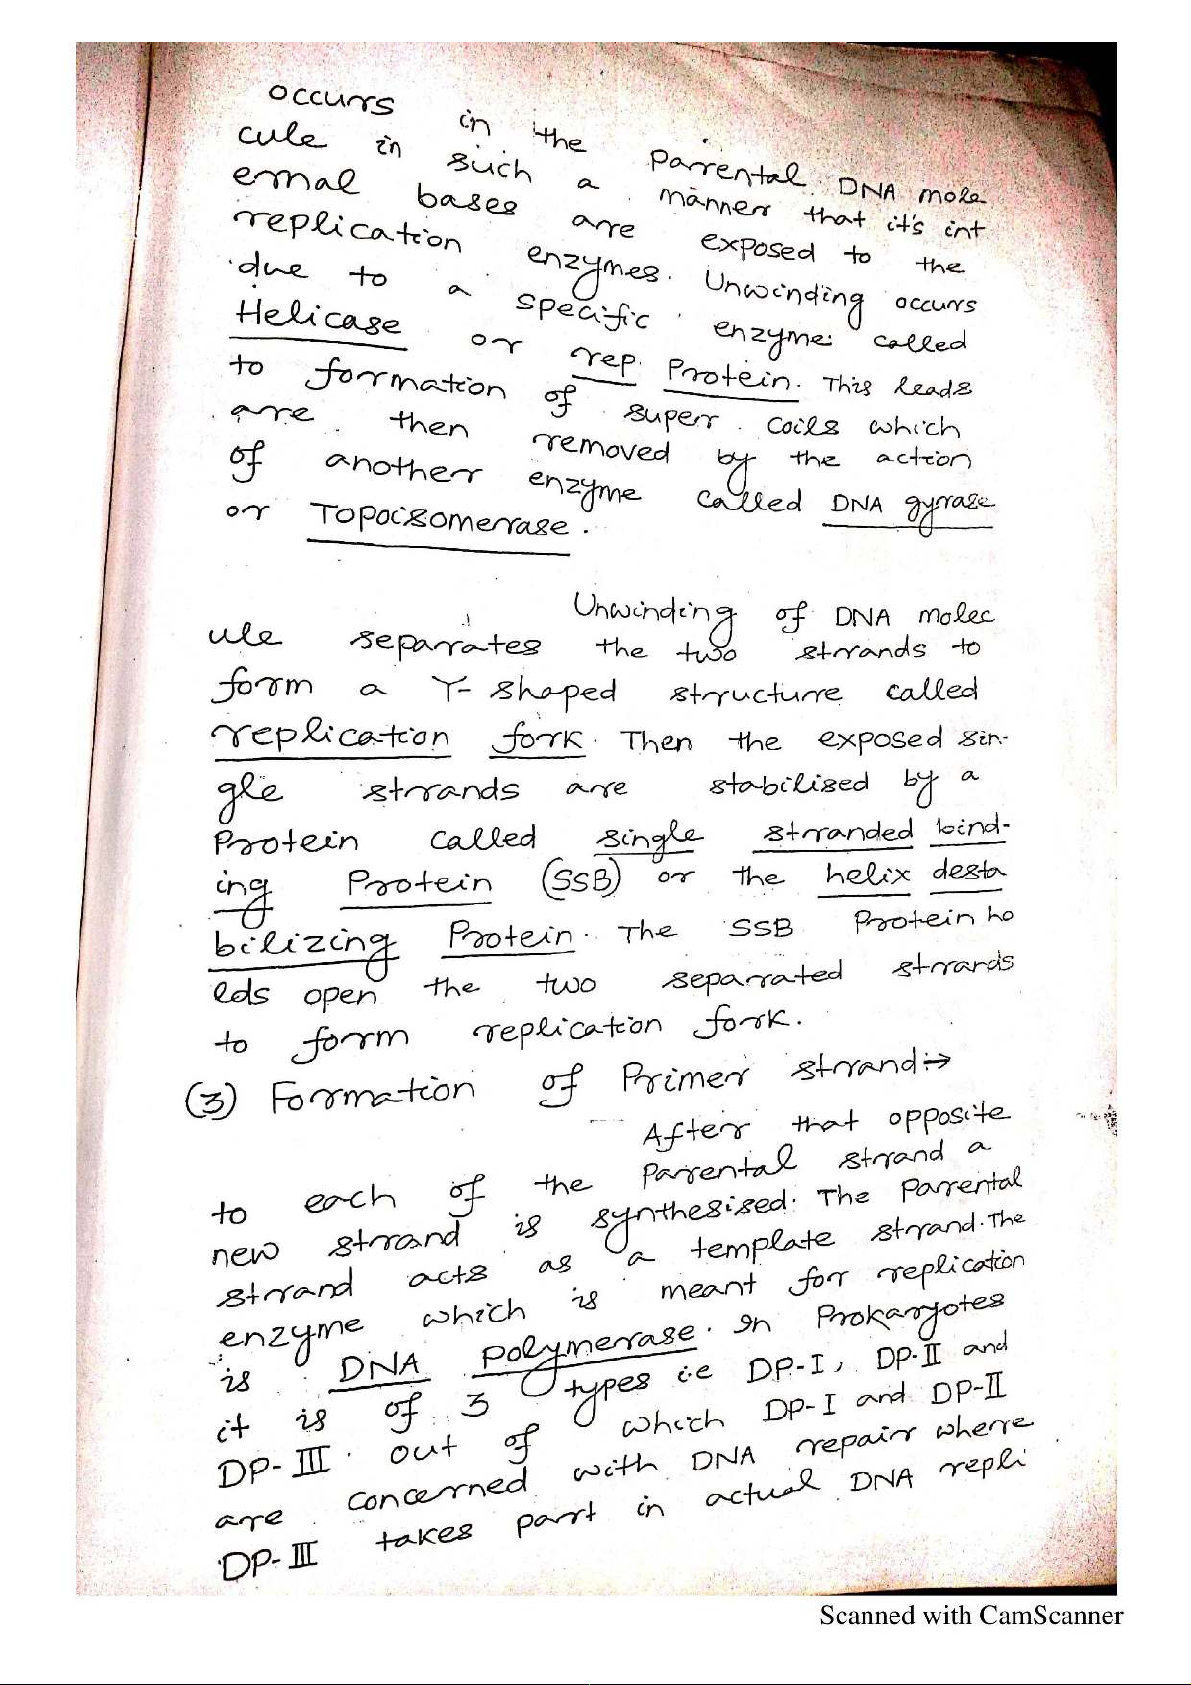 occurs in the Parental DNA mole
cule in such a manner that it's int
ernal bases are exposed to the
replication enzymes. Unwinding occurs
due to a specific enzyme called
Helicase or rep Protein. This leads
to formation of super coils which
are then removed by the action
of another enzyme called DNA gyrase
or Topoisomerase.
Unwinding of DNA molec
ule separates the two strands to
form a Y-shaped structure called
replication fork. Then the exposed sin-
gle strands are stabilised by a
Protein called single stranded bind-
ing Protein (SSB) or the helix desta
bilizing Protein. The SSB Protein ho
lds open the two separated strands
to form replication fork.
(3) Formation of Primer strand:→
After that opposite
to each of the Parental strand a
new strand is synthesised. The Parental
strand acts as a template strand. The
enzyme which is meant for replication
is DNA polymerase. In Prokaryotes
it is of 3 types i.e DP-I, DP-II and
DP-III. out of which DP-I and DP-II
are concerned with DNA repair where
DP-III takes part in actual DNA repli
Scanned with CamScanner